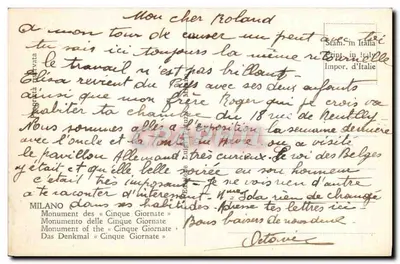 Mon cher Roland
a mon tour de causer un peu avec toi
tu sais ici toujours la même
le travail n'est pas brillant.
Elisa revient du Pays avec ses deux enfants
ainsi que mon frère Roger qui je crois va
habiter ta chambre du 18 rue de Reuilly
Nous sommes allés à l'exposition la semaine dernière
avec l'oncle et la tante on a visité
le pavillon Allemand très curieux. Le roi des Belges
y était et quelle belle soirée en son honneur
c'était très imposant. Je ne vois rien d'autre
a te raconter d'intéressant. rien de changé
dans ses habitudes. Adresse tes lettres ici
Bons baisers de nous deux.
Octavie
Stam. in Italia
Impr. in Italy
Impor. d'Italie
MILANO
Monument des « Cinque Giornate »
Monumento delle Cinque Giornate
Monument of the « Cinque Giornate »
Das Denkmal « Cinque Giornate »